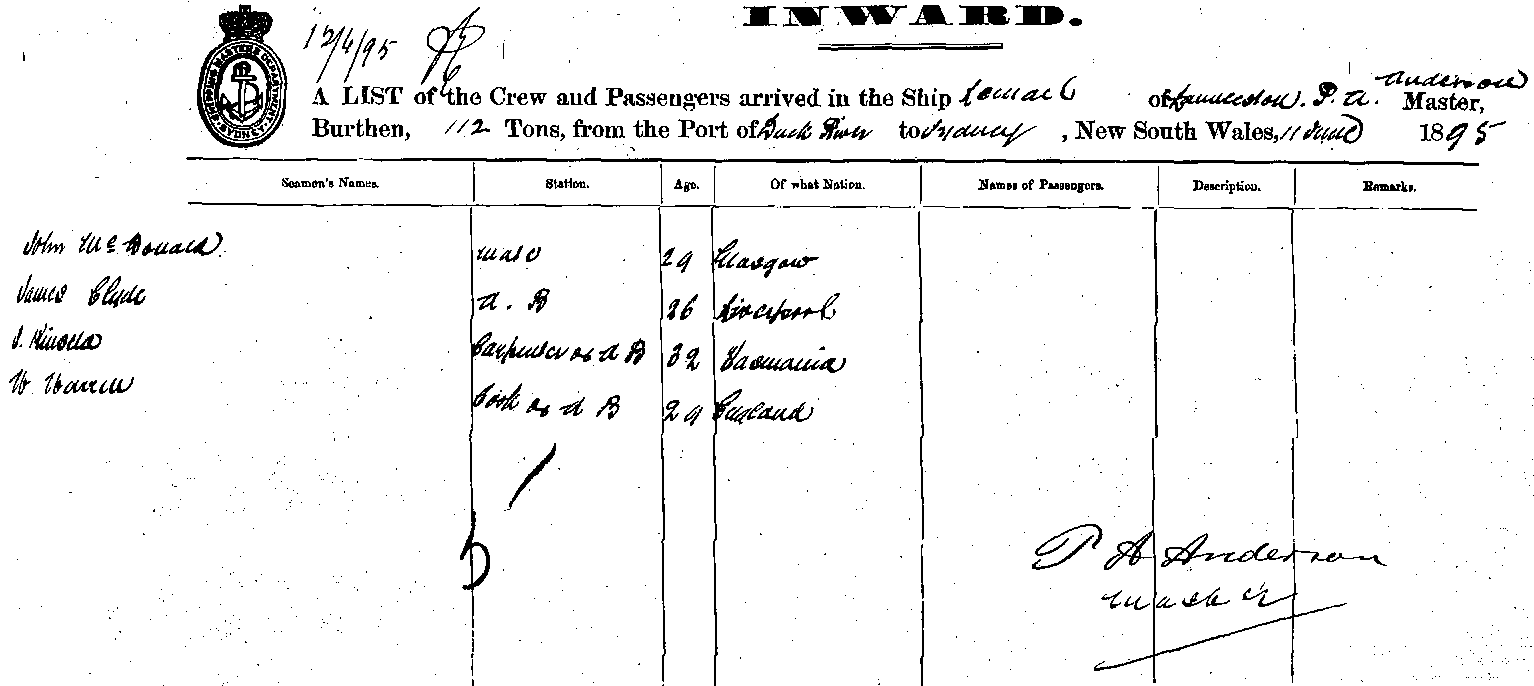 INWARD.
12/6/95
SHIPPING MASTERS DEPARTMENT SYDNEY
A LIST of the Crew and Passengers arrived in the Ship of Launceston. P. A. Anderson Master,
Burthen, 112 Tons, from the Port of Duck River to Sydney, New South Wales, 11 June 1895
Seamen's Names. Station. Age. Of what Nation. Names of Passengers. Description. Remarks.
John McDonald Mate 29 Glasgow
James Clyde A. B 26 Liverpool
Carpenter as A B 32 Tasmania
W Cook as A B 29 England
1
5
P A Anderson
Master